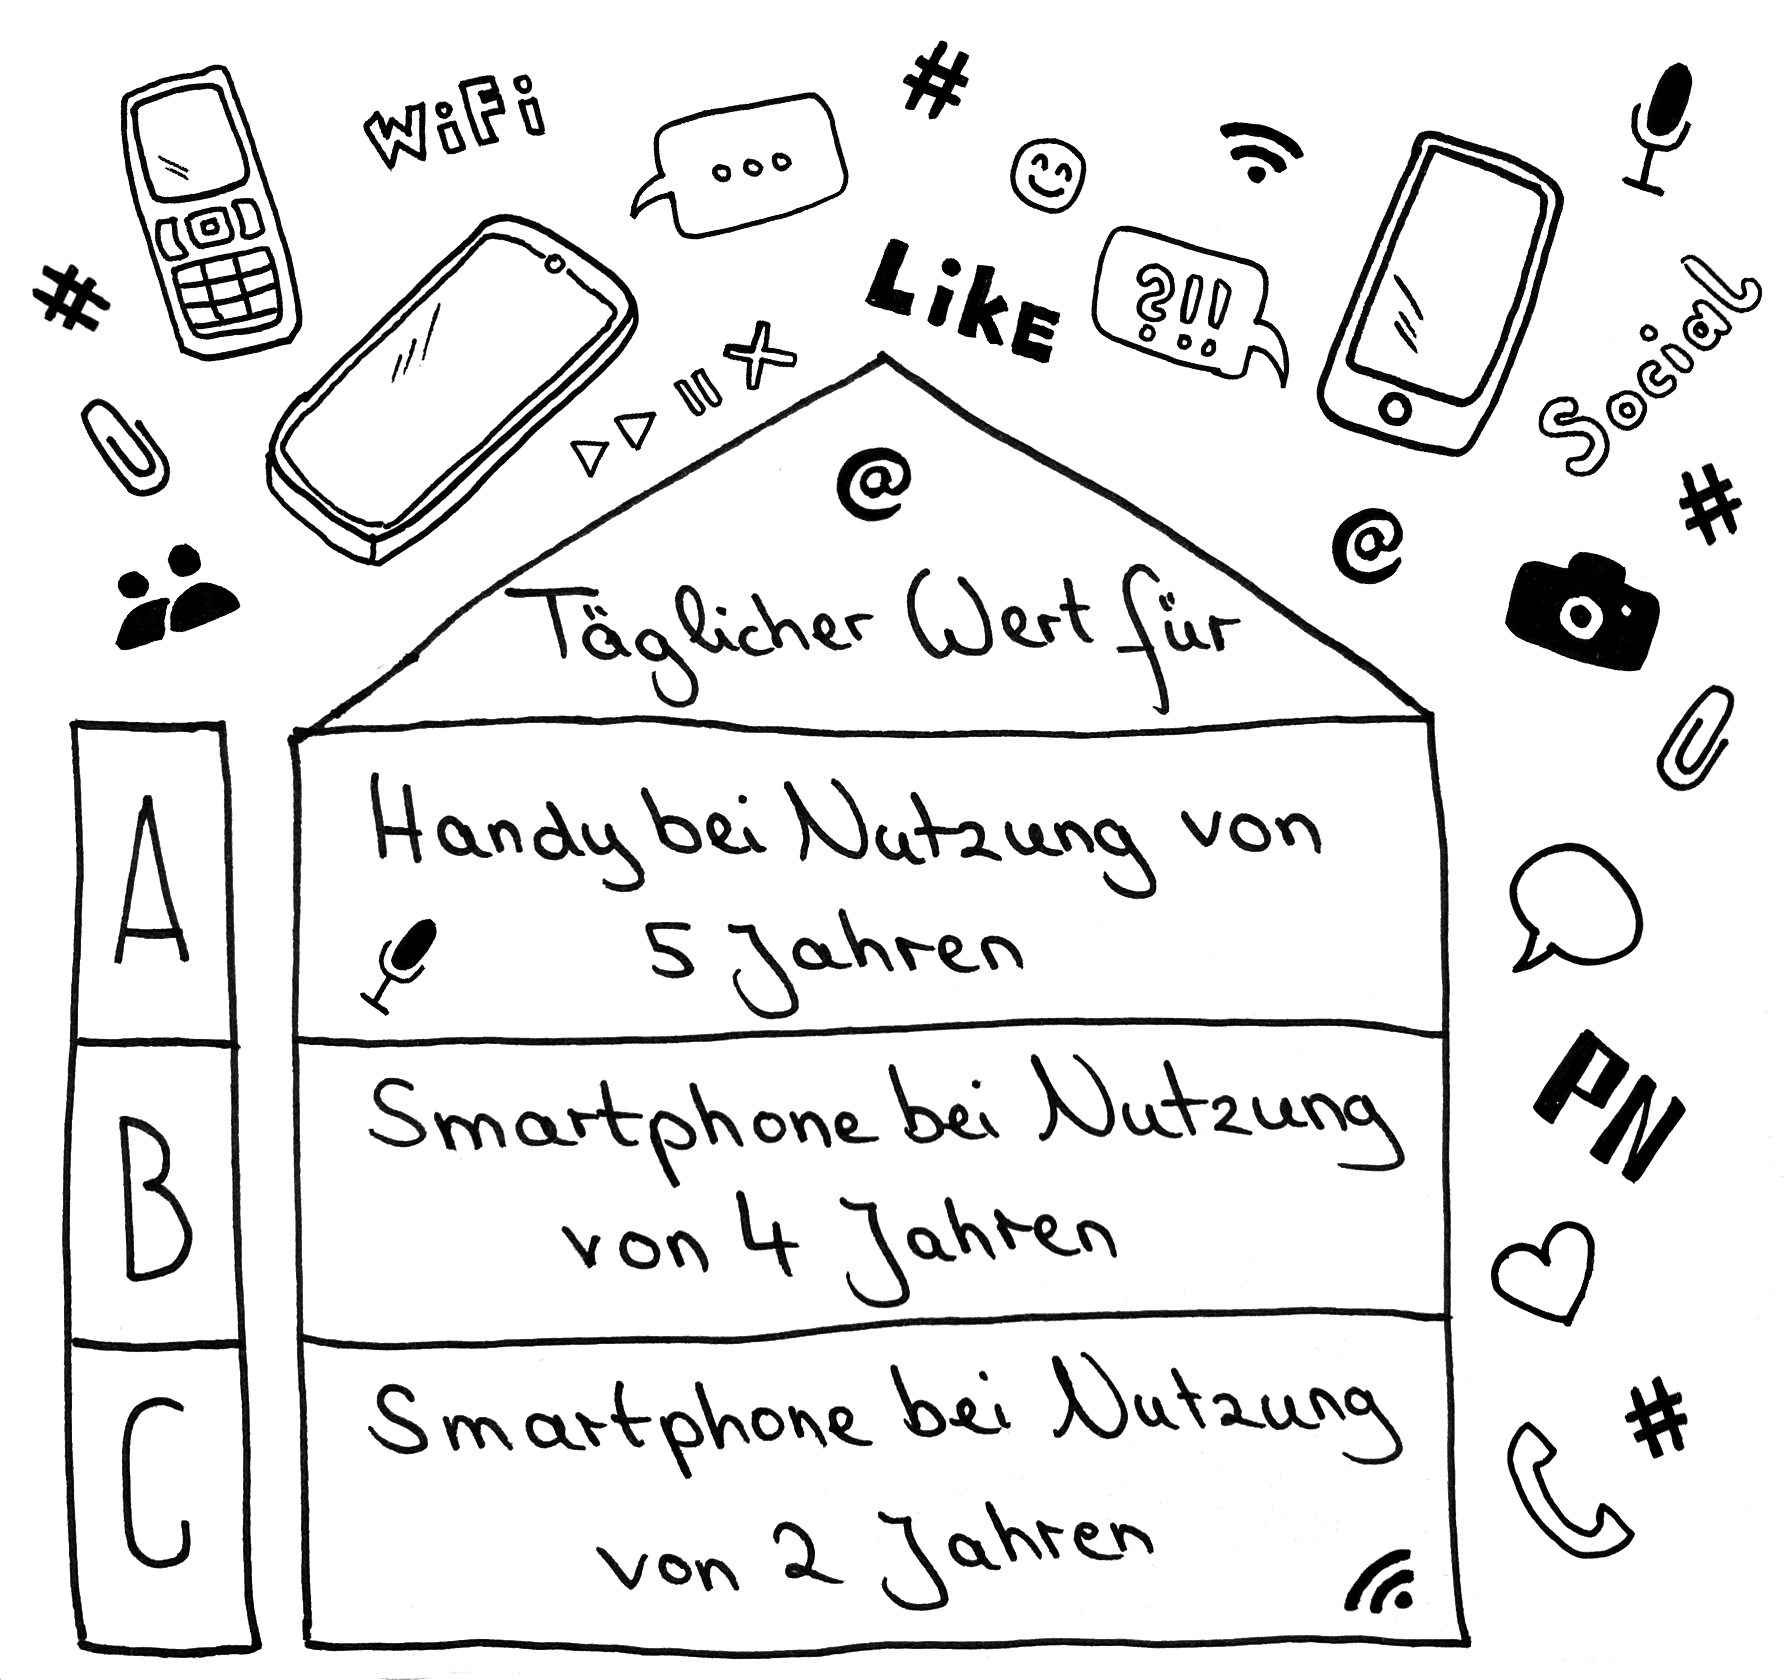 WiFi
...
#
Like
?!!
Social
#
#
@
@
Täglicher Wert für
A
Handy bei Nutzung von
5 Jahren
PN
B
Smartphone bei Nutzung
von 4 Jahren
C
Smartphone bei Nutzung
von 2 Jahren
#